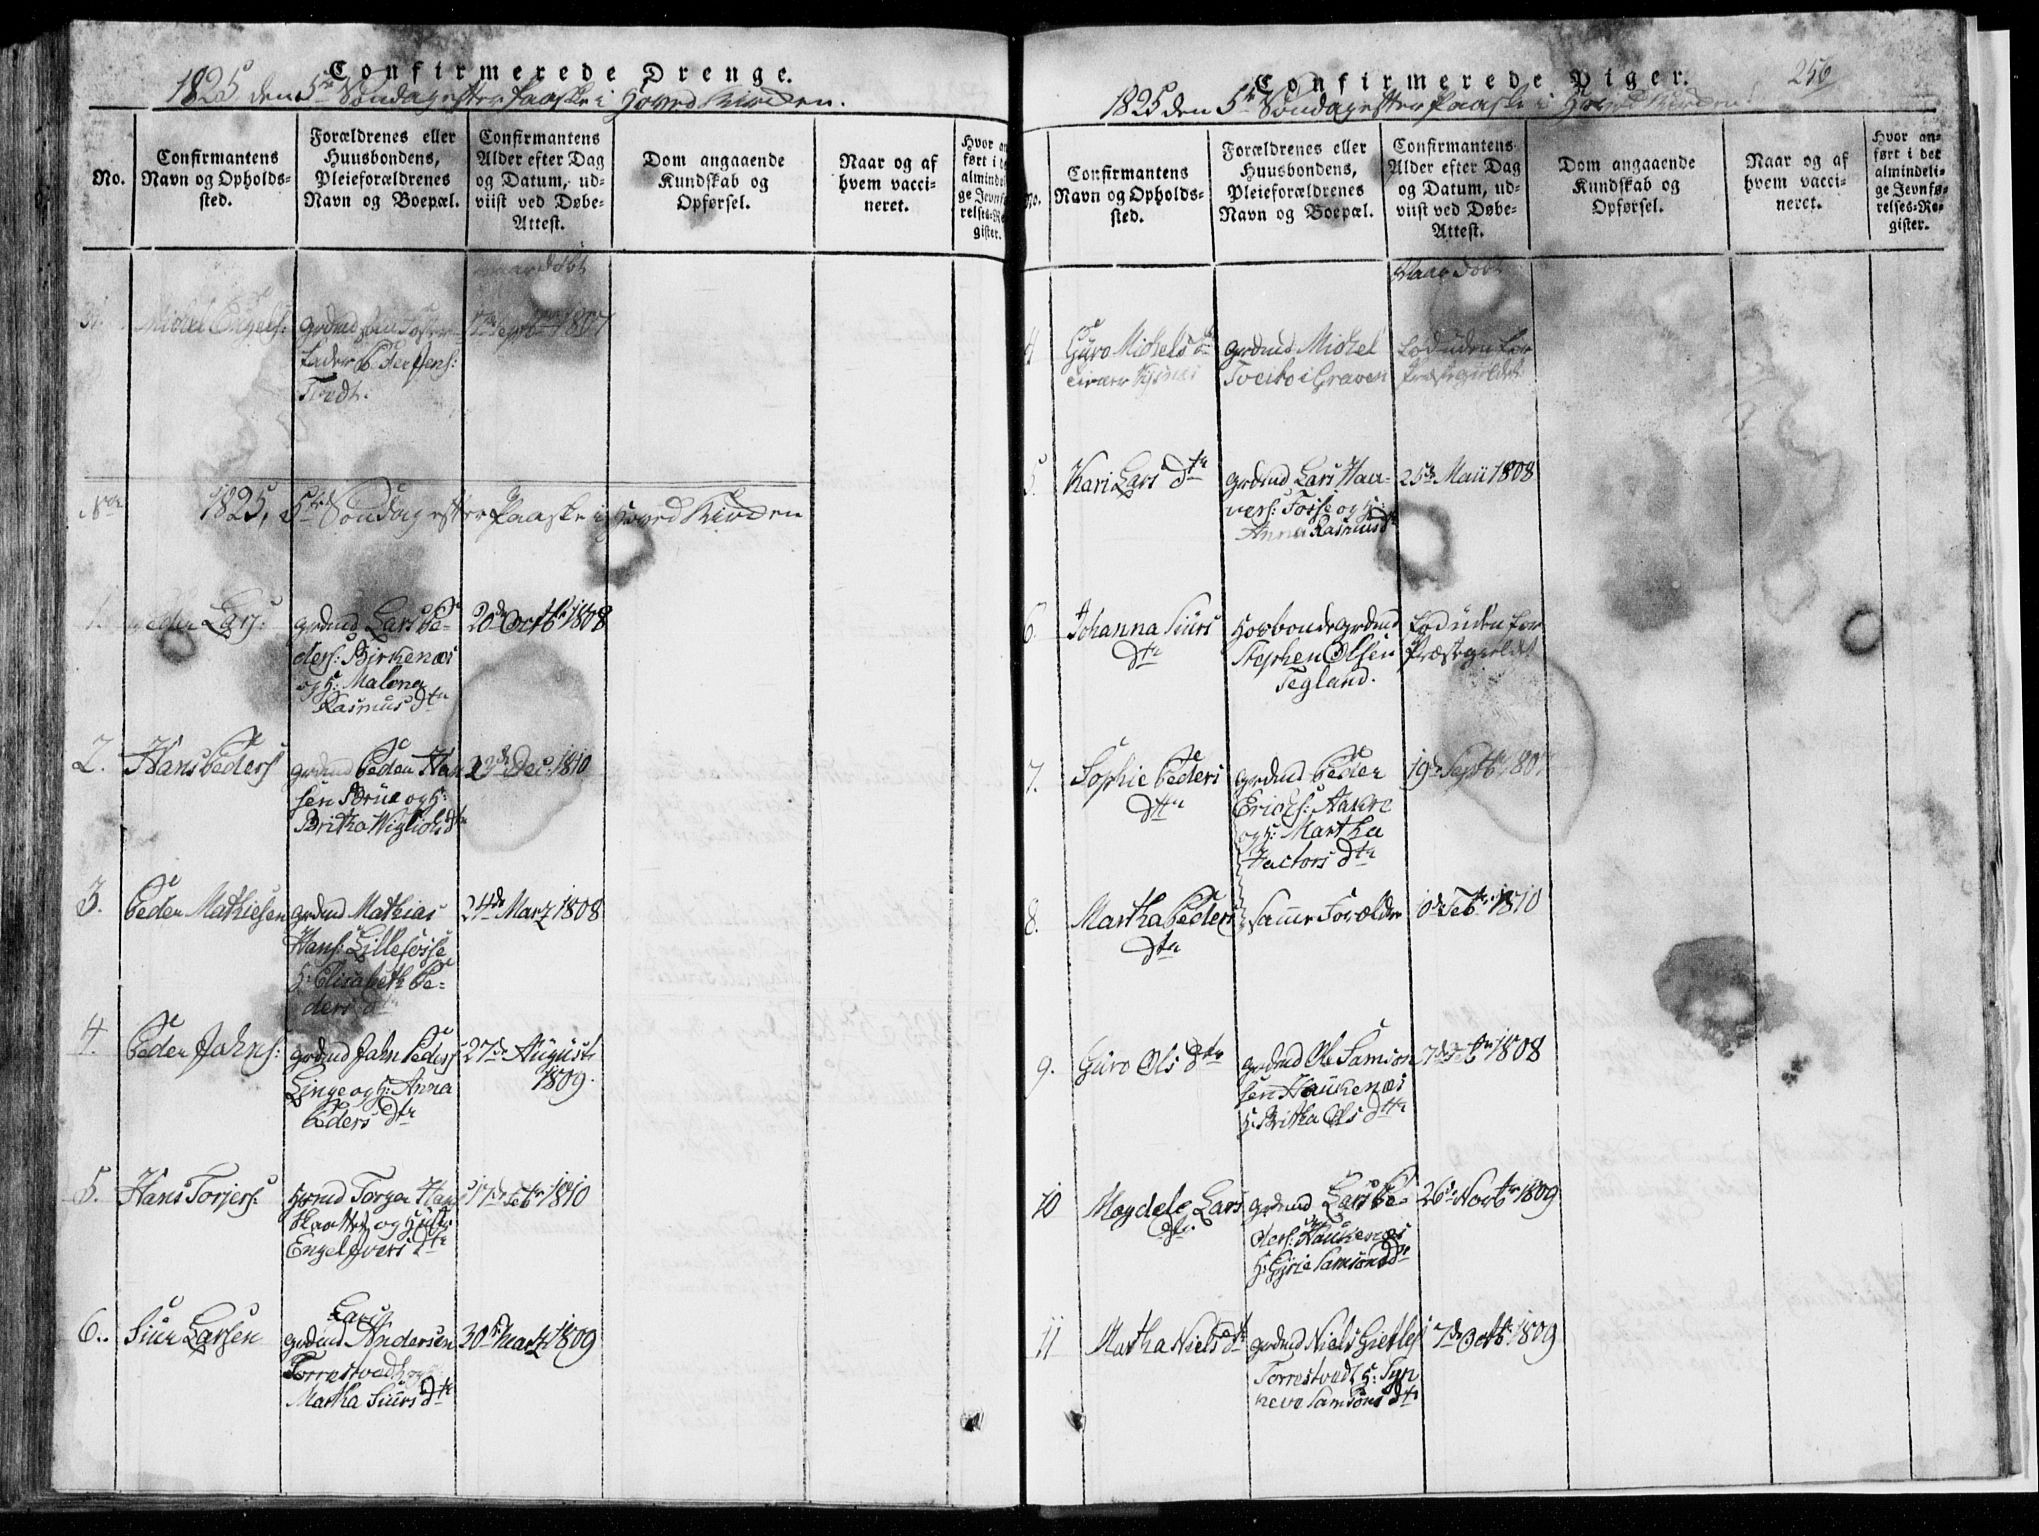 Confirmerede Drenge.
1825 den 5te Søndag efter Paaske i Hoved Kirken.
No.
Confirmantens
Navn og Opholds-
sted.
Forældrenes eller
Huusbondens,
Pleieforældrenes
Navn og Boepæl.
Confirmantens
Alder efter Dag
og Datum, ud-
viist ved Døbe-
Attest.
Dom angaaende
Kundskab og
Opførsel.
Naar og af
hvem vacci-
neret.
Hvor an
ført i
almindel
ge Jevnfø
relses-Re
gister.
naar döbt
Michel Engels:
Sept 1807
fader
Tvedt.
1825, 5te Søndag efter Paaske i Hoved Kirken
1. Peder Lars:
grdmd Lars Pe-
ders: Birkenæs
og H: Malena
Rasmus dtr
20de Octb 1808
2. Hans Peders
grdmd Peder Han
sen Brue og H:
Britha Wiglichs dtr
Dec: 1810
3. Peder Mathiesen
grdmd Mathias
Hans: Lillefosse
H: Elisabeth Pe-
ders dtr
24de Marz 1808
4. Peder Jahns:
grdmd Jahn Peders
Linge og H: Anna
Peders dtr
27de August
1809.
5. Hans Torjers:
Hsmd Torger Hans
og Hust:
Engel Ivers dtr
17de Feb 1810
6. Siur Larsen
Lars
grdmd Andersen
Torrestvedt og
Martha Siurs dtr
30te Martz 1809
Confirmerede Piger. 256
1825 den 5te Søndag efter Paaske i Hoved Kirken.
No.
Confirmantens
Navn og Opholds-
sted.
Forældrenes eller
Huusbondens,
Pleieforældrenes
Navn og Boepæl.
Confirmantens
Alder efter Dag
og Datum, ud-
viist ved Døbe-
Attest.
Dom angaaende
Kundskab og
Opførsel.
Naar og af
hvem vacci-
neret.
Hvor an-
ført i det
almindeli-
ge Jevnfø-
relses-Re-
gister.
Naar döbt
4 Guro Michels dr
grdmd Michel
Tveito i Graven
Föd uden for
Præstegieldet
5. Kari Lars dtr
grdmd Lars Haa-
vers: Fosse og H:
Anna Rasmus dtr
25de Maii 1808
6. Johanna Siurs
dtr
Hosbonde grdmd
Stephen Olsen
Tegland.
Föd uden for
Præstegieldet
7. Sophie Peders
dtr
grdmd Peder
Erichs: Aakre
og H: Martha
Hactors dtr
19de Septbr 1807
8. Martha Peders
dtr
Samme Forældre
Feb: 1810
9. Guro Ols dtr
grdmd Ole Samson
sen Haukenæs
H: Britha Ols dtr
7de Feb 1808
10 Magdele Lars
dtr.
grdmd Lars Pe-
ders: Haukenæs
H: Gyrie Samsons dtr
26de Novbr 1809
11 Matha Niels dtr
grdmd Niels Gietles
Torrestvedt H: Syn
neve Samsons dtr
7de Octb: 1809